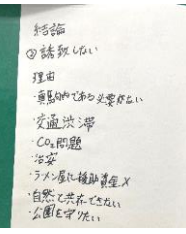 結論
②誘致しない
理由
・真駒内である必要がない
・交通渋滞
・CO₂問題
・治安
・ラーメン屋に補助資金×
・自然と共存できない
・公園を守りたい